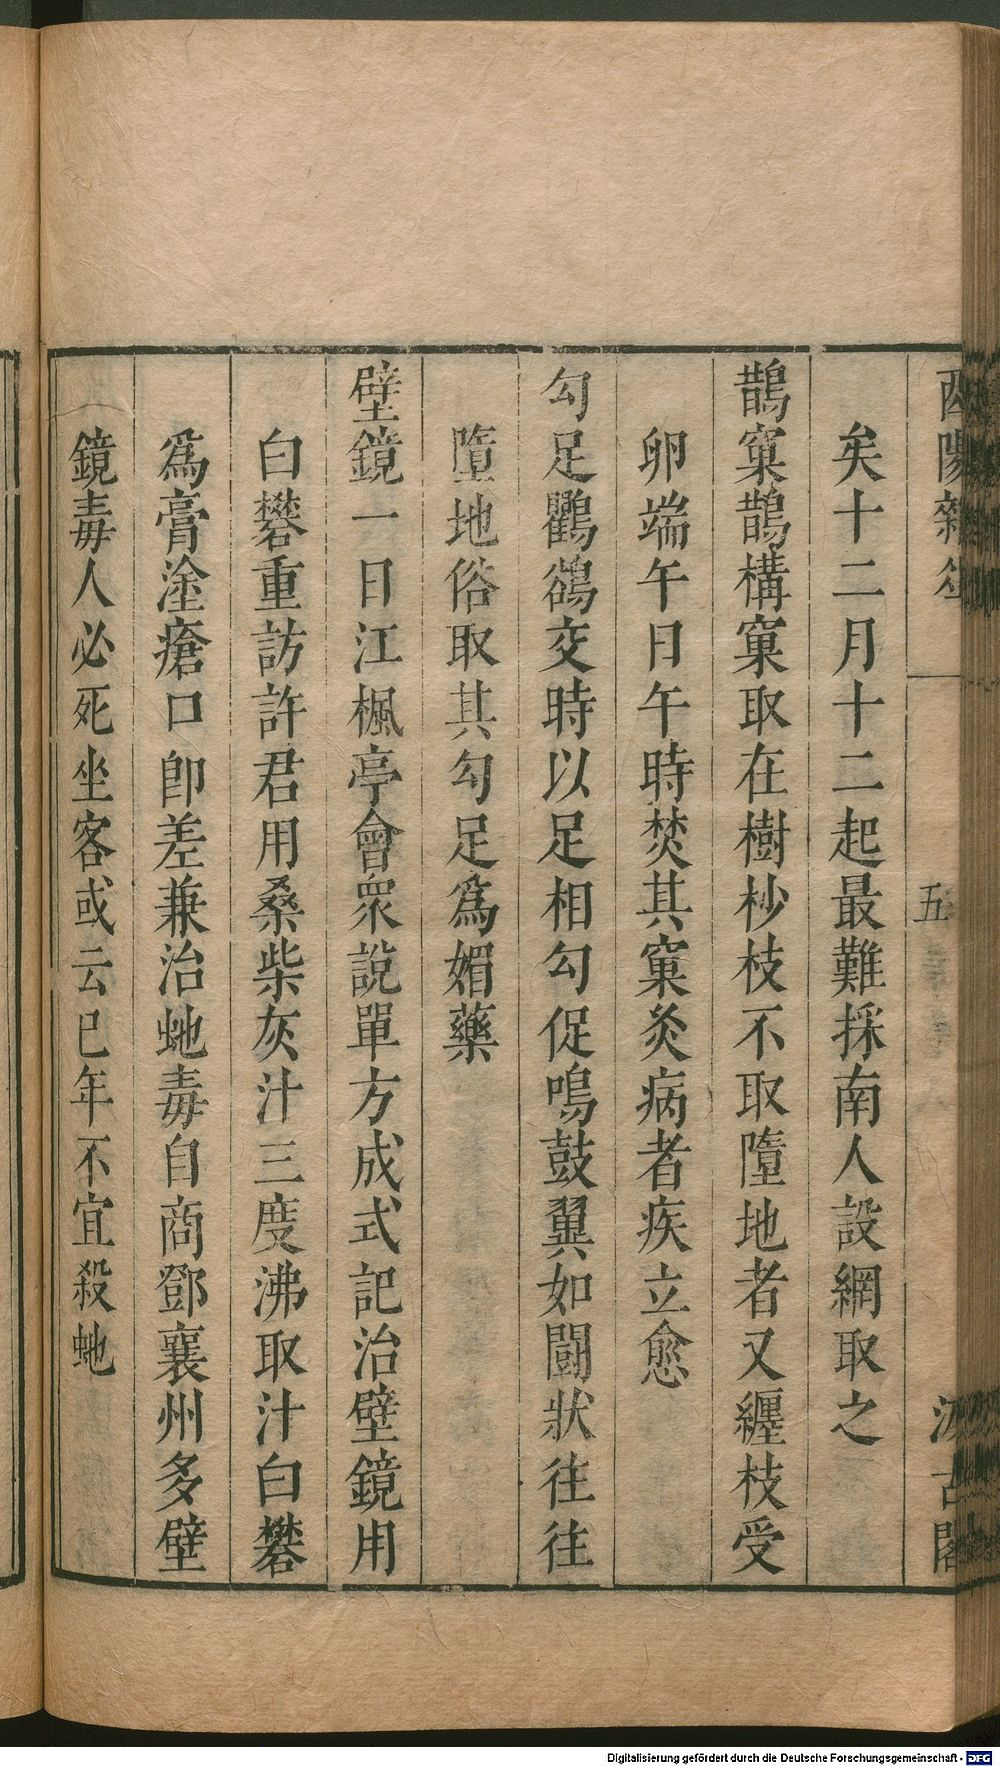 酉陽雜俎
五
汲古閣
矣十二月十二起最難採南人設網取之
鵲窠鵲構窠取在樹杪枝不取墮地者又纏枝受
卵端午日午時焚其窠灸病者疾立愈
勾足鸜鵒交時以足相勾促鳴鼓翼如鬭狀往往
墮地俗取其勾足爲媚藥
壁鏡一日江楓亭會衆說單方成式記治壁鏡用
白礬重訪許君用桑柴灰汁三度沸取汁白礬
爲膏塗瘡口卽差兼治虵毒自商鄧襄州多壁
鏡毒人必死坐客或云巳年不宜殺虵
Digitalisierung gefördert durch die Deutsche Forschungsgemeinschaft - DFG